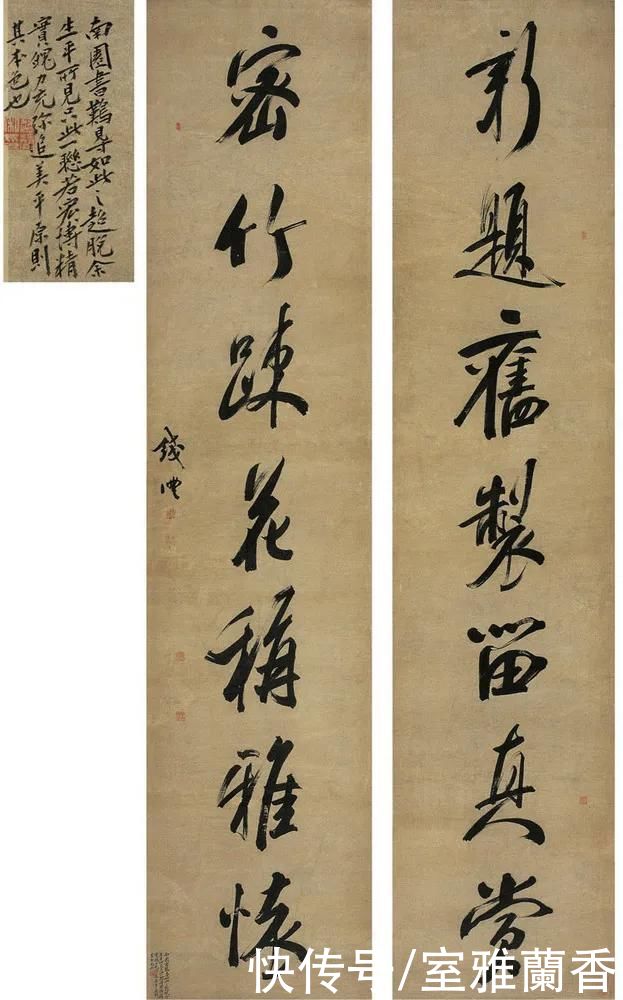 新題舊製留真賞
密竹踈花稱雅懷
錢灃
南園書難得如此之超脫余
生平所見只此一聯若宏博精
實魄力充弥追美平原則
其本色也
快传号/室雅蘭香